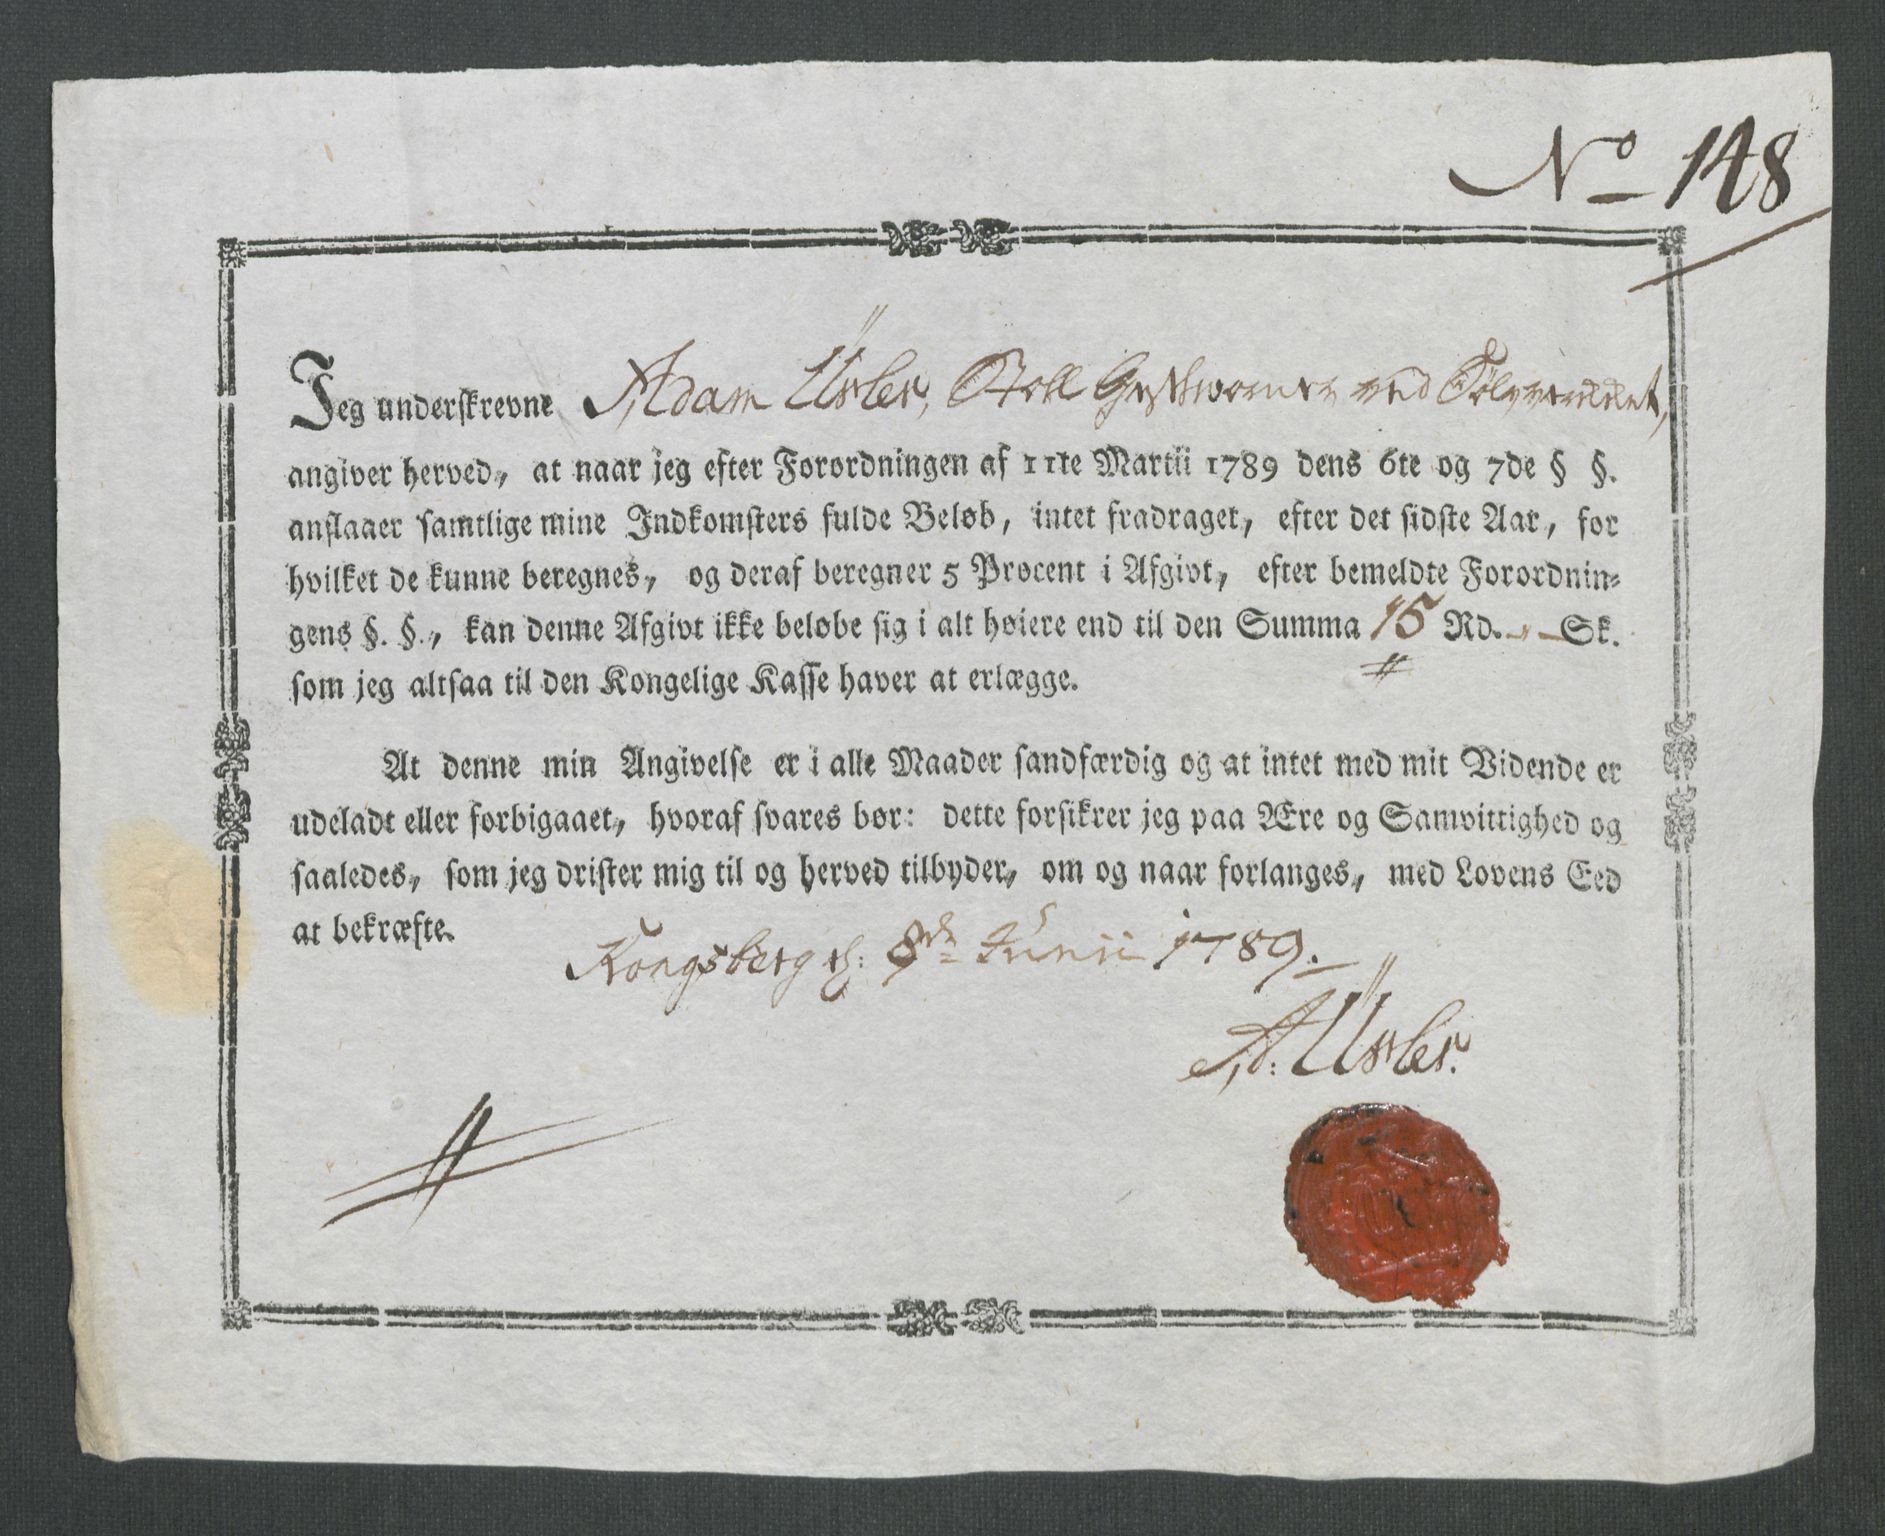 No 148
Jeg underskrevne Adam Üsler, Stoll Geschworner ved Sølvverket,
angiver herved, at naar jeg efter Forordningen af 11te Martii 1789 dens 6te og 7de § §.
anslaaer samtlige mine Indkomsters fulde Beløb, intet fradraget, efter det sidste Aar, for
hvilket de kunne beregnes, og deraf beregner 5 Procent i Afgivt, efter bemeldte Forordnin-
gens §. §., kan denne Afgivt ikke beløbe sig i alt høiere end til den Summa 15 Rd. - Sk.
som jeg altsaa til den Kongelige Kasse haver at erlægge.
At denne min Angivelse er i alle Maader sandfærdig og at intet med mit Vidende er
udeladt eller forbigaaet, hvoraf svares bør: dette forsikrer jeg paa Ære og Samvittighed og
saaledes, som jeg drister mig til og herved tilbyder, om og naar forlanges, med Lovens Eed
at bekræfte.
Kongsberg d: 8de Junii 1789.
Ad: Üsler.